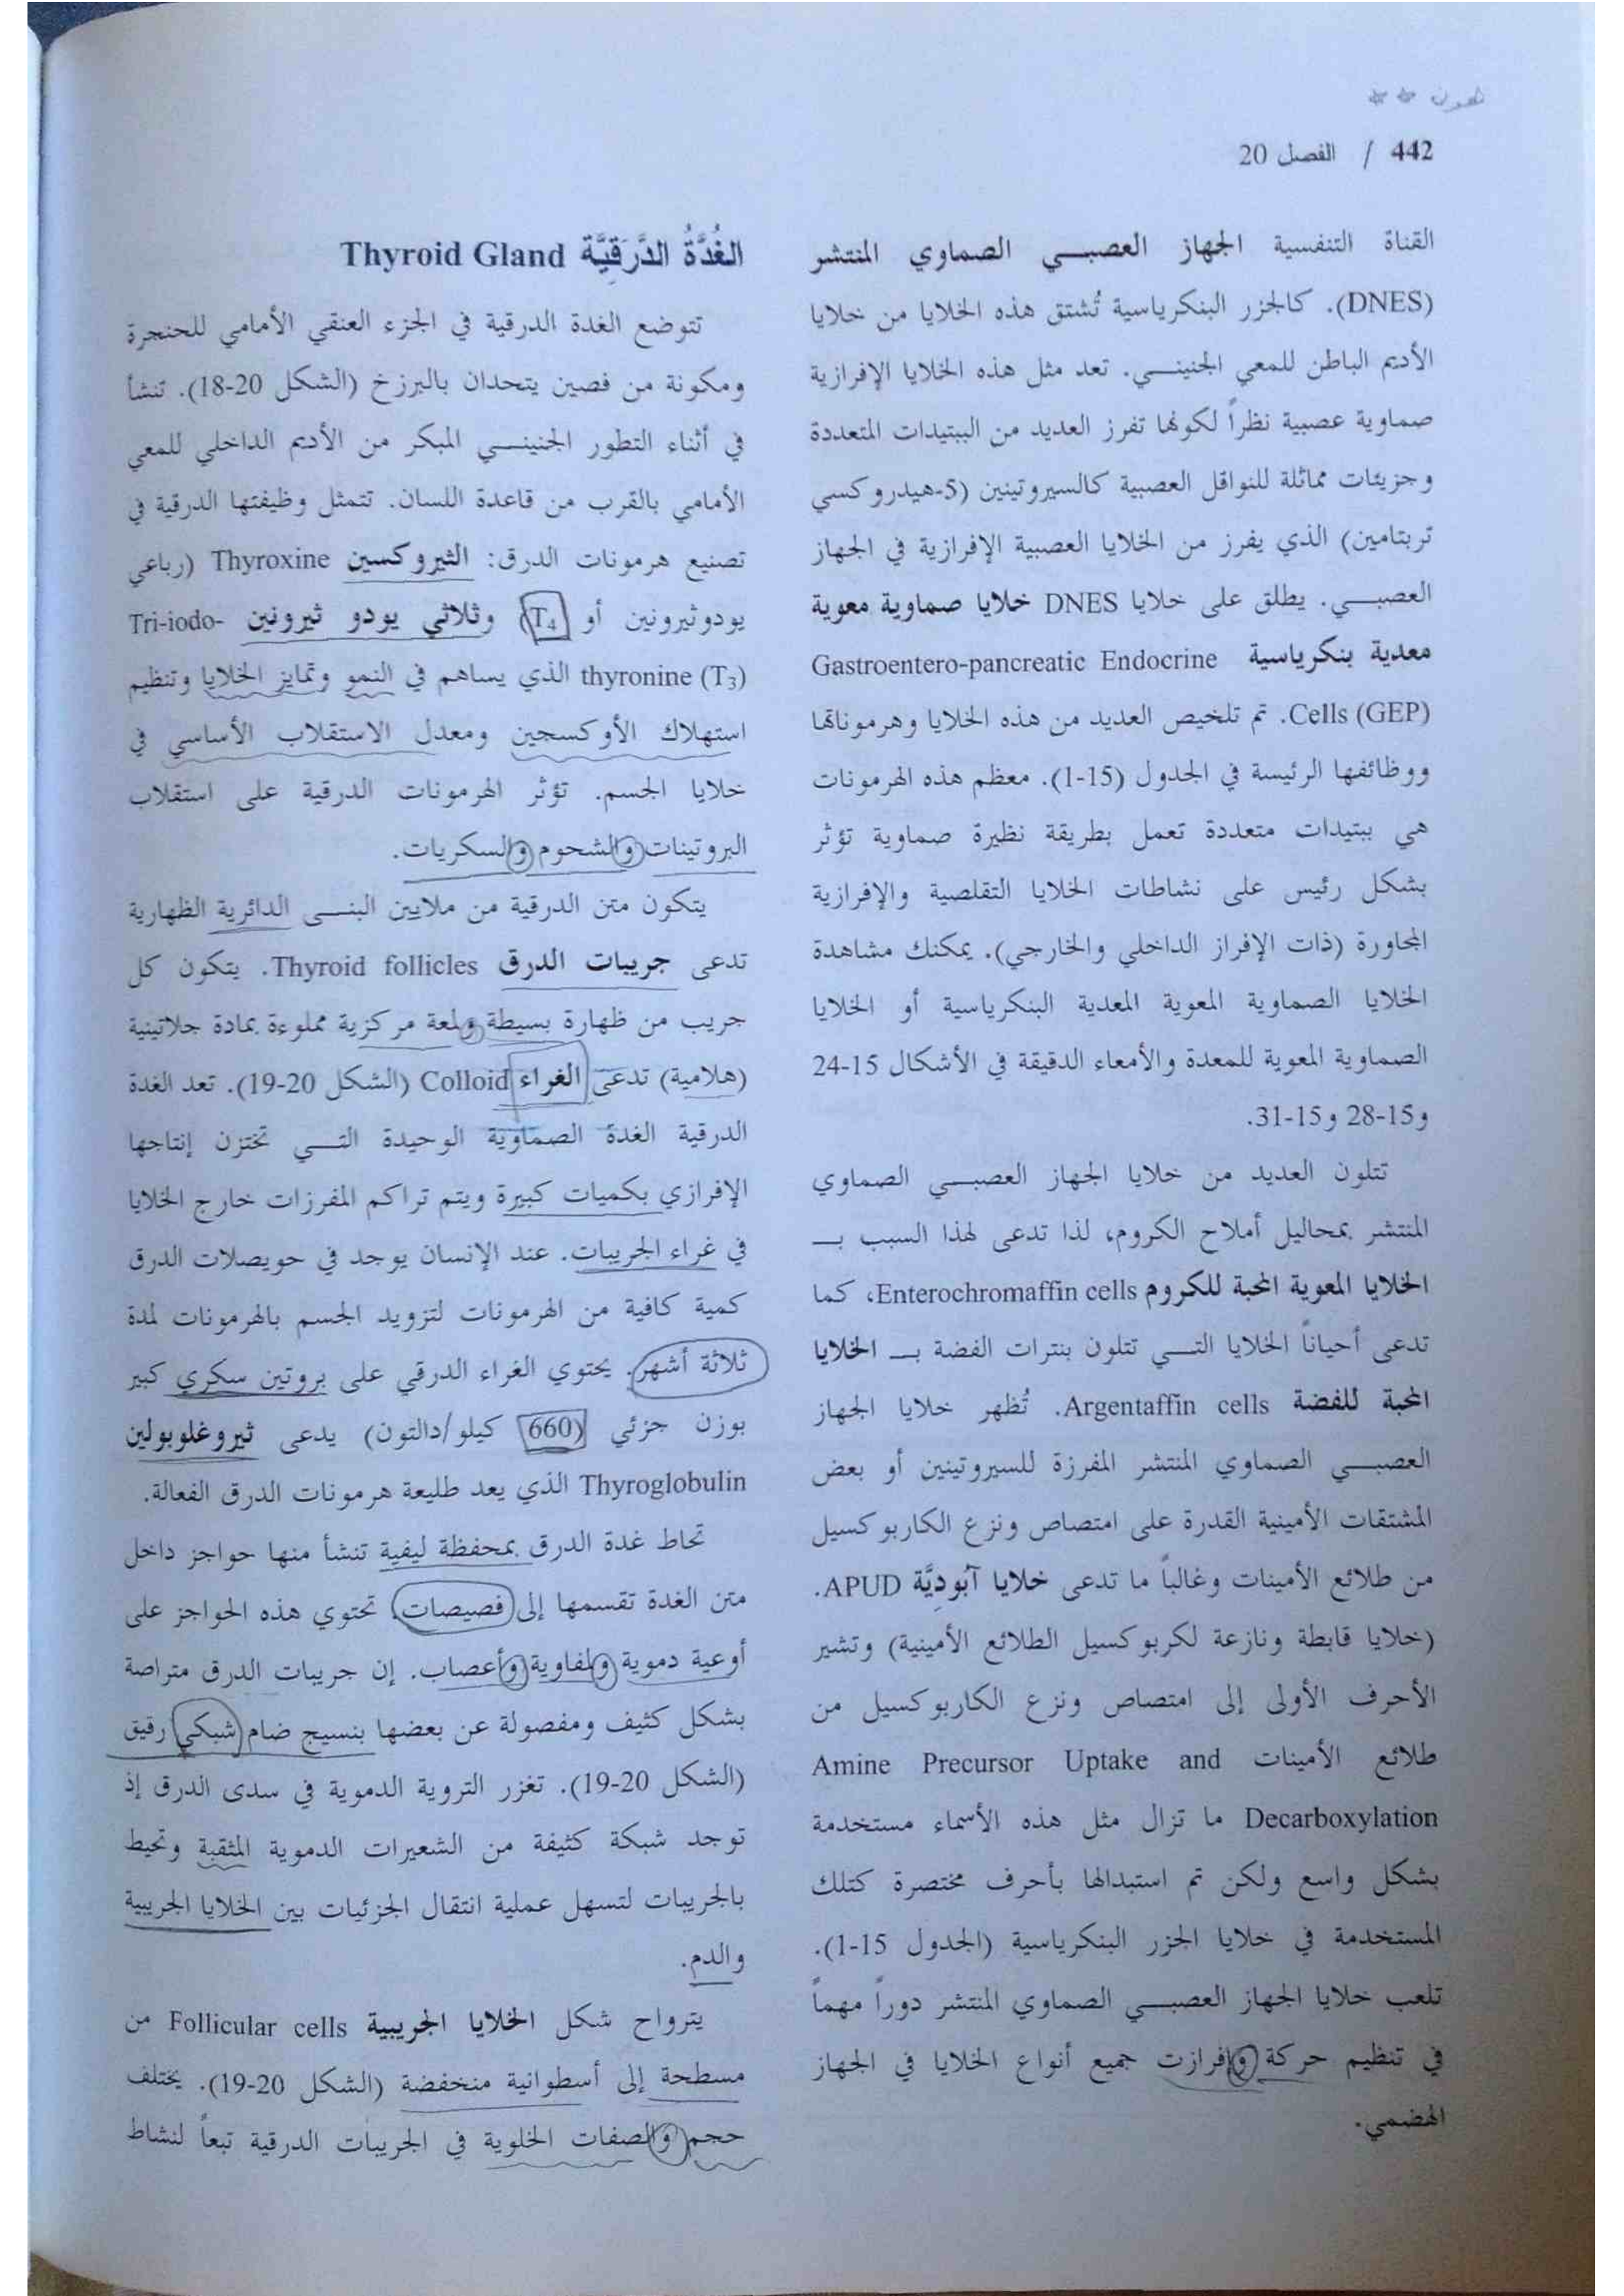 442 / الفصل 20
القناة التنفسية الجهاز العصبي الصماوي المنتشر
(DNES). كالجزر البنكرياسية تُشتق هذه الخلايا من خلايا
الأديم الباطن للمعي الجنيني. تعد مثل هذه الخلايا الإفرازية
صماوية عصبية نظراً لكونها تفرز العديد من الببتيدات المتعددة
وجزيئات مماثلة للنواقل العصبية كالسيروتينين (5-هيدروكسي
تربتامين) الذي يفرز من الخلايا العصبية الإفرازية في الجهاز
العصبي. يطلق على خلايا DNES خلايا صماوية معوية
معدية بنكرياسية Gastroentero-pancreatic Endocrine
Cells (GEP). تم تلخيص العديد من هذه الخلايا وهرموناتها
ووظائفها الرئيسة في الجدول (15-1). معظم هذه الهرمونات
هي ببتيدات متعددة تعمل بطريقة نظيرة صماوية تؤثر
بشكل رئيس على نشاطات الخلايا التقلصية والإفرازية
المجاورة (ذات الإفراز الداخلي والخارجي). يمكنك مشاهدة
الخلايا الصماوية المعوية المعدية البنكرياسية أو الخلايا
الصماوية المعوية للمعدة والأمعاء الدقيقة في الأشكال 15-24
و15-28 و15-31.
تتلون العديد من خلايا الجهاز العصبي الصماوي
المنتشر بمحاليل أملاح الكروم، لذا تدعى لهذا السبب بـ
الخلايا المعوية المحبة للكروم Enterochromaffin cells، كما
تدعى أحياناً الخلايا التي تتلون بنترات الفضة بـ الخلايا
المحبة للفضة Argentaffin cells. تُظهر خلايا الجهاز
العصبي الصماوي المنتشر المفرزة للسيروتينين أو بعض
المشتقات الأمينية القدرة على امتصاص ونزع الكاربوكسيل
من طلائع الأمينات وغالباً ما تدعى خلايا آبُودِيَّة APUD.
(خلايا قابطة ونازعة لكربوكسيل الطلائع الأمينية) وتشير
الأحرف الأولى إلى امتصاص ونزع الكاربوكسيل من
طلائع الأمينات Amine Precursor Uptake and
Decarboxylation ما تزال مثل هذه الأسماء مستخدمة
بشكل واسع ولكن تم استبدالها بأحرف مختصرة كتلك
المستخدمة في خلايا الجزر البنكرياسية (الجدول 15-1).
تلعب خلايا الجهاز العصبي الصماوي المنتشر دوراً مهماً
في تنظيم حركة وإفرازت جميع أنواع الخلايا في الجهاز
الهضمي.
الغُدَّةُ الدَّرَقِيَّة Thyroid Gland
تتوضع الغدة الدرقية في الجزء العنقي الأمامي للحنجرة
ومكونة من فصين يتحدان بالبرزخ (الشكل 20-18). تنشأ
في أثناء التطور الجنيني المبكر من الأديم الداخلي للمعي
الأمامي بالقرب من قاعدة اللسان. تتمثل وظيفتها الدرقية في
تصنيع هرمونات الدرق: الثيروكسين Thyroxine (رباعي
يودوثيرونين أو T4) وثلاثي يودو ثيرونين Tri-iodo-
thyronine (T3) الذي يساهم في النمو وتمايز الخلايا وتنظيم
استهلاك الأوكسجين ومعدل الاستقلاب الأساسي في
خلايا الجسم. تؤثر الهرمونات الدرقية على استقلاب
البروتينات والشحوم والسكريات.
يتكون متن الدرقية من ملايين البنى الدائرية الظهارية
تدعى جريبات الدرق Thyroid follicles. يتكون كل
جريب من ظهارة بسيطة ولمعة مركزية مملوءة بمادة جلاتينية
(هلامية) تدعى الغراء Colloid (الشكل 20-19). تعد الغدة
الدرقية الغدة الصماوية الوحيدة التي تختزن إنتاجها
الإفرازي بكميات كبيرة ويتم تراكم المفرزات خارج الخلايا
في غراء الجريبات. عند الإنسان يوجد في حويصلات الدرق
كمية كافية من الهرمونات لتزويد الجسم بالهرمونات لمدة
ثلاثة أشهر. يحتوي الغراء الدرقي على بروتين سكري كبير
بوزن جزئي (660 كيلو/دالتون) يدعى ثيروغلوبولين
Thyroglobulin الذي يعد طليعة هرمونات الدرق الفعالة.
تحاط غدة الدرق بمحفظة ليفية تنشأ منها حواجز داخل
متن الغدة تقسمها إلى فصيصات، تحتوي هذه الحواجز على
أوعية دموية ولمفاوية وأعصاب. إن جريبات الدرق متراصة
بشكل كثيف ومفصولة عن بعضها بنسيج ضام شبكي رقيق
(الشكل 20-19). تغزر التروية الدموية في سدى الدرق إذ
توجد شبكة كثيفة من الشعيرات الدموية المثقبة وتحيط
بالجريبات لتسهل عملية انتقال الجزئيات بين الخلايا الجريبية
والدم.
يترواح شكل الخلايا الجريبية Follicular cells من
مسطحة إلى أسطوانية منخفضة (الشكل 20-19). يختلف
حجم والصفات الخلوية في الجريبات الدرقية تبعاً لنشاط